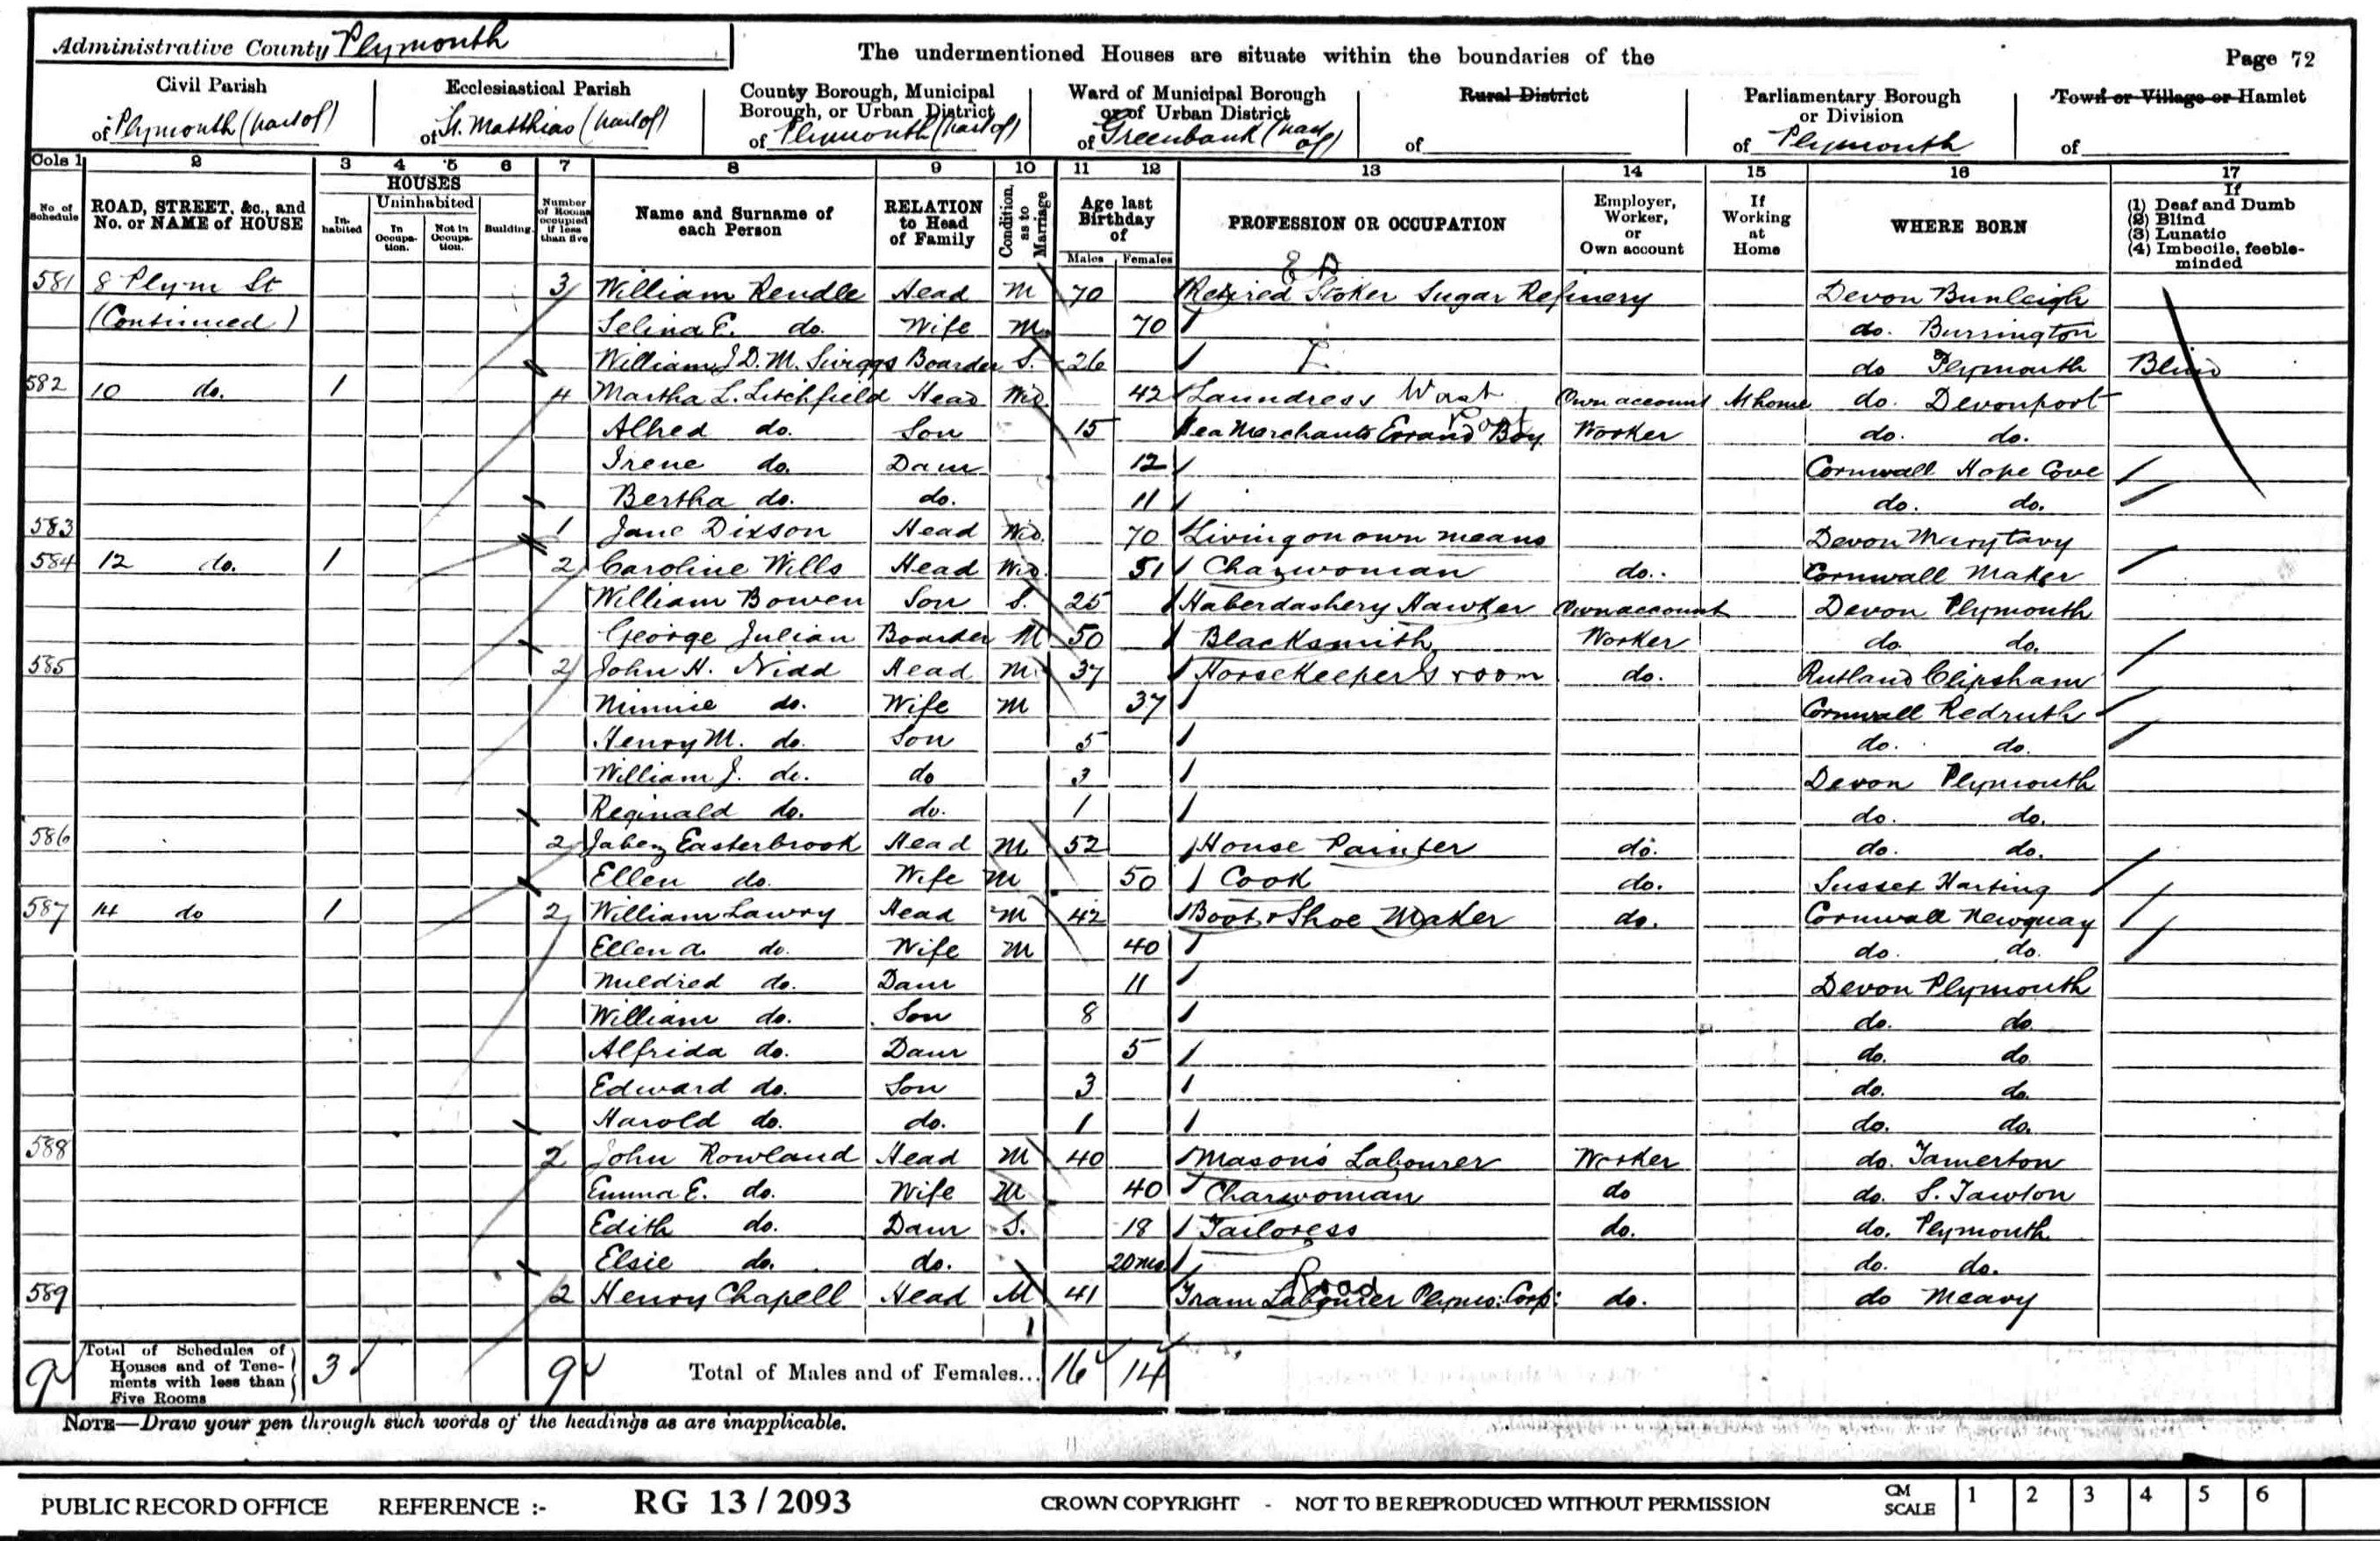 Administrative County Plymouth
The undermentioned Houses are situate within the boundaries of the
Page 72
Civil Parish of Plymouth (part of)
Ecclesiastical Parish of St. Matthias (part of)
County Borough, Municipal Borough, or Urban District of Plymouth (part of)
Ward of Municipal Borough or of Urban District of Greenbank (part of)
Rural District of
Parliamentary Borough or Division of Plymouth
Town or Village or Hamlet of
Cols 1 2 3 4 5 6 7 8 9 10 11 12 13 14 15 16 17
No. of Schedule
ROAD, STREET, &c., and No. or NAME of HOUSE
HOUSES
In-habited
Uninhabited
In Occupa-tion.
Not in Occupa-tion.
Building.
Number of Rooms occupied if less than five
Name and Surname of each Person
RELATION to Head of Family
Condition as to Marriage
Age last Birthday of
Males Females
PROFESSION OR OCCUPATION
Employer, Worker, or Own account
If Working at Home
WHERE BORN
If (1) Deaf and Dumb (2) Blind (3) Lunatic (4) Imbecile, feeble-minded
581 8 Plym St 3 William Rendle Head M 70 Retired Stoker Sugar Refinery Devon
(Continued) Selina E. do. Wife M 70 do. Burrington
William J. D. M. Boarder S. 26 do Plymouth Blind
582 10 do. 1 4 Martha L. Litchfield Head Wid. 42 Laundress Wash Own account At home do. Devonport
Alfred do. Son 15 Tea Merchants Errand Boy Worker do. do.
Irene do. Daur 12 Cornwall Hope Cove
Bertha do. do. 11 do. do.
583 1 Jane Dixson Head Wid. 70 Living on own means Devon Marytavy
584 12 do. 1 2 Caroline Wills Head Wid. 51 Charwoman do. Cornwall Maker
William Bowen Son S. 25 Haberdashery Hawker Own account Devon Plymouth
George Julian Boarder M 50 Blacksmith Worker do. do.
585 2 John H. Nidd Head M. 37 Horsekeeper & room do. Rutland Clipsham
Minnie do. Wife M 37 Cornwall Redruth
Henry M. do. Son 5 do. do.
William J. do. do 3 Devon Plymouth
Reginald do. do. 1 do. do.
586 2 Jabez Easterbrook Head M 52 House Painter do. do. do.
Ellen do. Wife M 50 Cook do. Sussex Harting
587 14 do 1 2 William Lawry Head M 42 Boot & Shoe Maker do. Cornwall Newquay
Ellen A. do. Wife M 40 do. do.
Mildred do. Daur 11 Devon Plymouth
William do. Son 8 do. do
Alfrida do. Daur 5 do. do
Edward do. Son 3 do. do.
Harold do. do. 1 do. do.
588 2 John Rowland Head M 40 Mason's Labourer Worker do. Tamerton
Emma E. do. Wife M 40 Charwoman do do. S. Tawton
Edith do. Daur S. 18 Tailoress do. do. Plymouth
Elsie do. do. 20 mo. do. do.
Road
589 2 Henry Chapell Head M 41 Tram Labourer Plymo: Corp: do. do Meavy
9 Total of Schedules of Houses and of Tene-ments with less than Five Rooms 3 9 Total of Males and of Females... 16 14
NOTE—Draw your pen through such words of the headings as are inapplicable.
PUBLIC RECORD OFFICE REFERENCE :- RG 13 / 2093 CROWN COPYRIGHT - NOT TO BE REPRODUCED WITHOUT PERMISSION CM SCALE 1 2 3 4 5 6